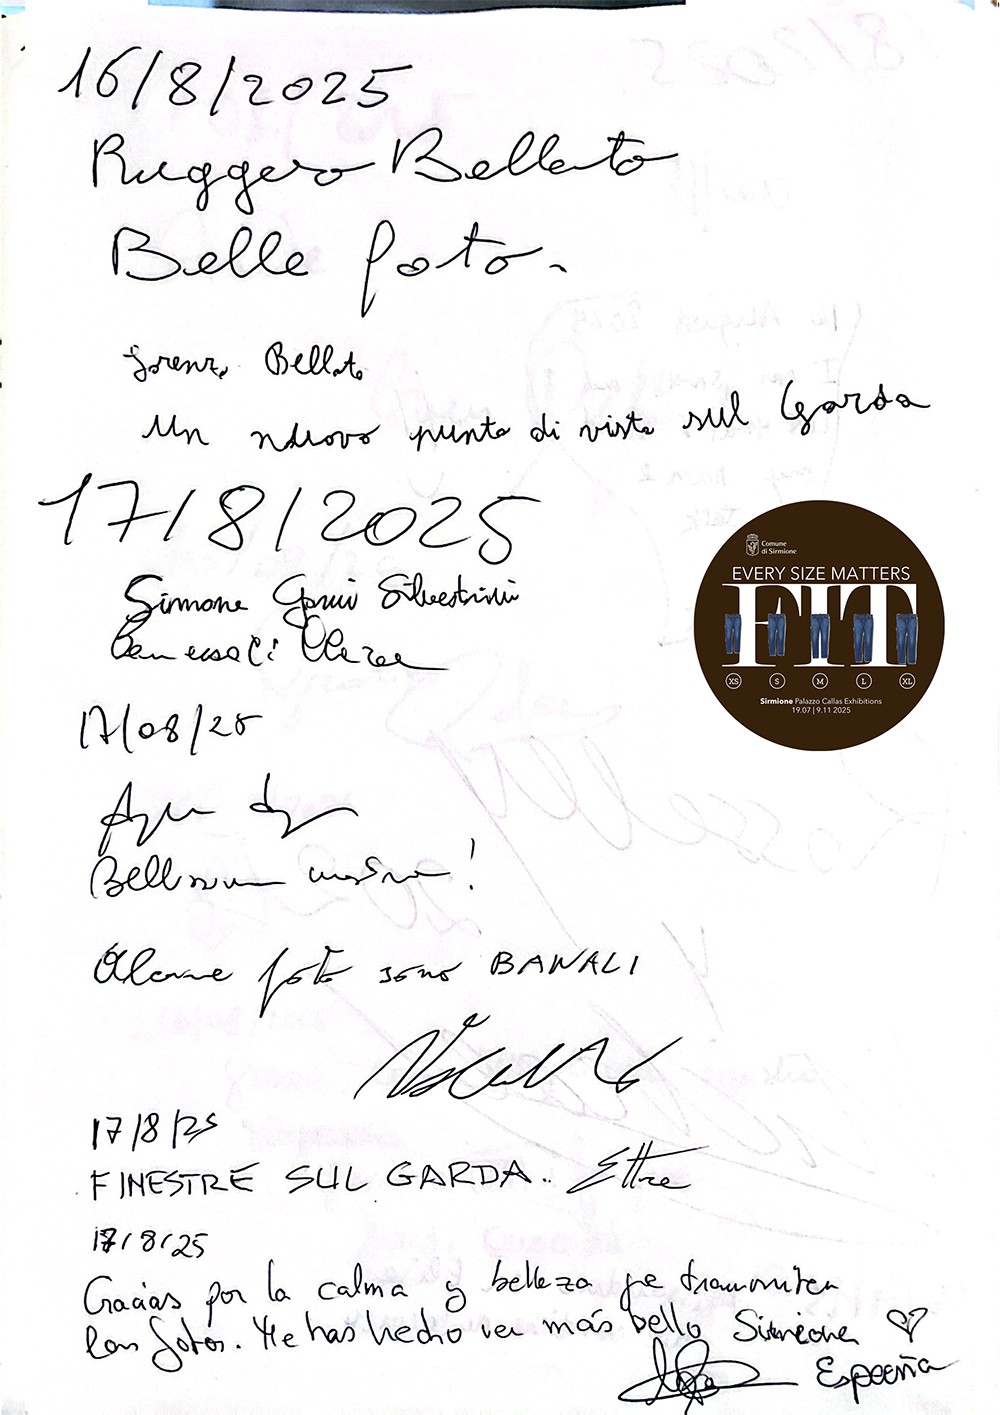 16/8/2025
Ruggero Bellato
Belle foto.
Lorenzo Bellato
Un nuovo punto di vista sul Garda
17/8/2025
Simone Silvestrini
17/08/25
Bellissima mostra!
Alcune foto sono BANALI
17/8/25
FINESTRE SUL GARDA.. Ettore
17/8/25
Gracias por la calma y belleza que transmiten
las fotos. Me has hecho ver más bello Sirmione ♡
España
Comune
di Sirmione
EVERY SIZE MATTERS
FIT
XS S M L XL
Sirmione Palazzo Callas Exhibitions
19.07 | 9.11 2025